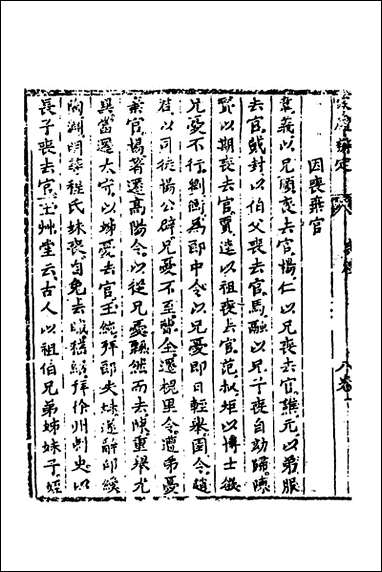 因喪棄官
韋義以兄順喪去官楊仁以兄喪去官譙元以弟服
去官戴封以伯父喪去官馬融以兄子喪自劾歸陳
寔以期喪去官賈逵以祖喪去官范叔矩以博士徵
兄憂不行劉衡為郎中令以兄憂即日輕米固令趙
君以司徒楊公辟兄憂不至繁全遷槐里令遭弟憂
棄官楊著遷高陽令以從兄憂飄然而去陳重舉尤
異當遷太守以姊憂去官王純拜郎失妹遂解印綬
陶淵明葬程氏妹喪自免去嵇紹拜徐州刺史以
長子喪去官王艸堂云古人以祖伯兄弟姊妹子姪